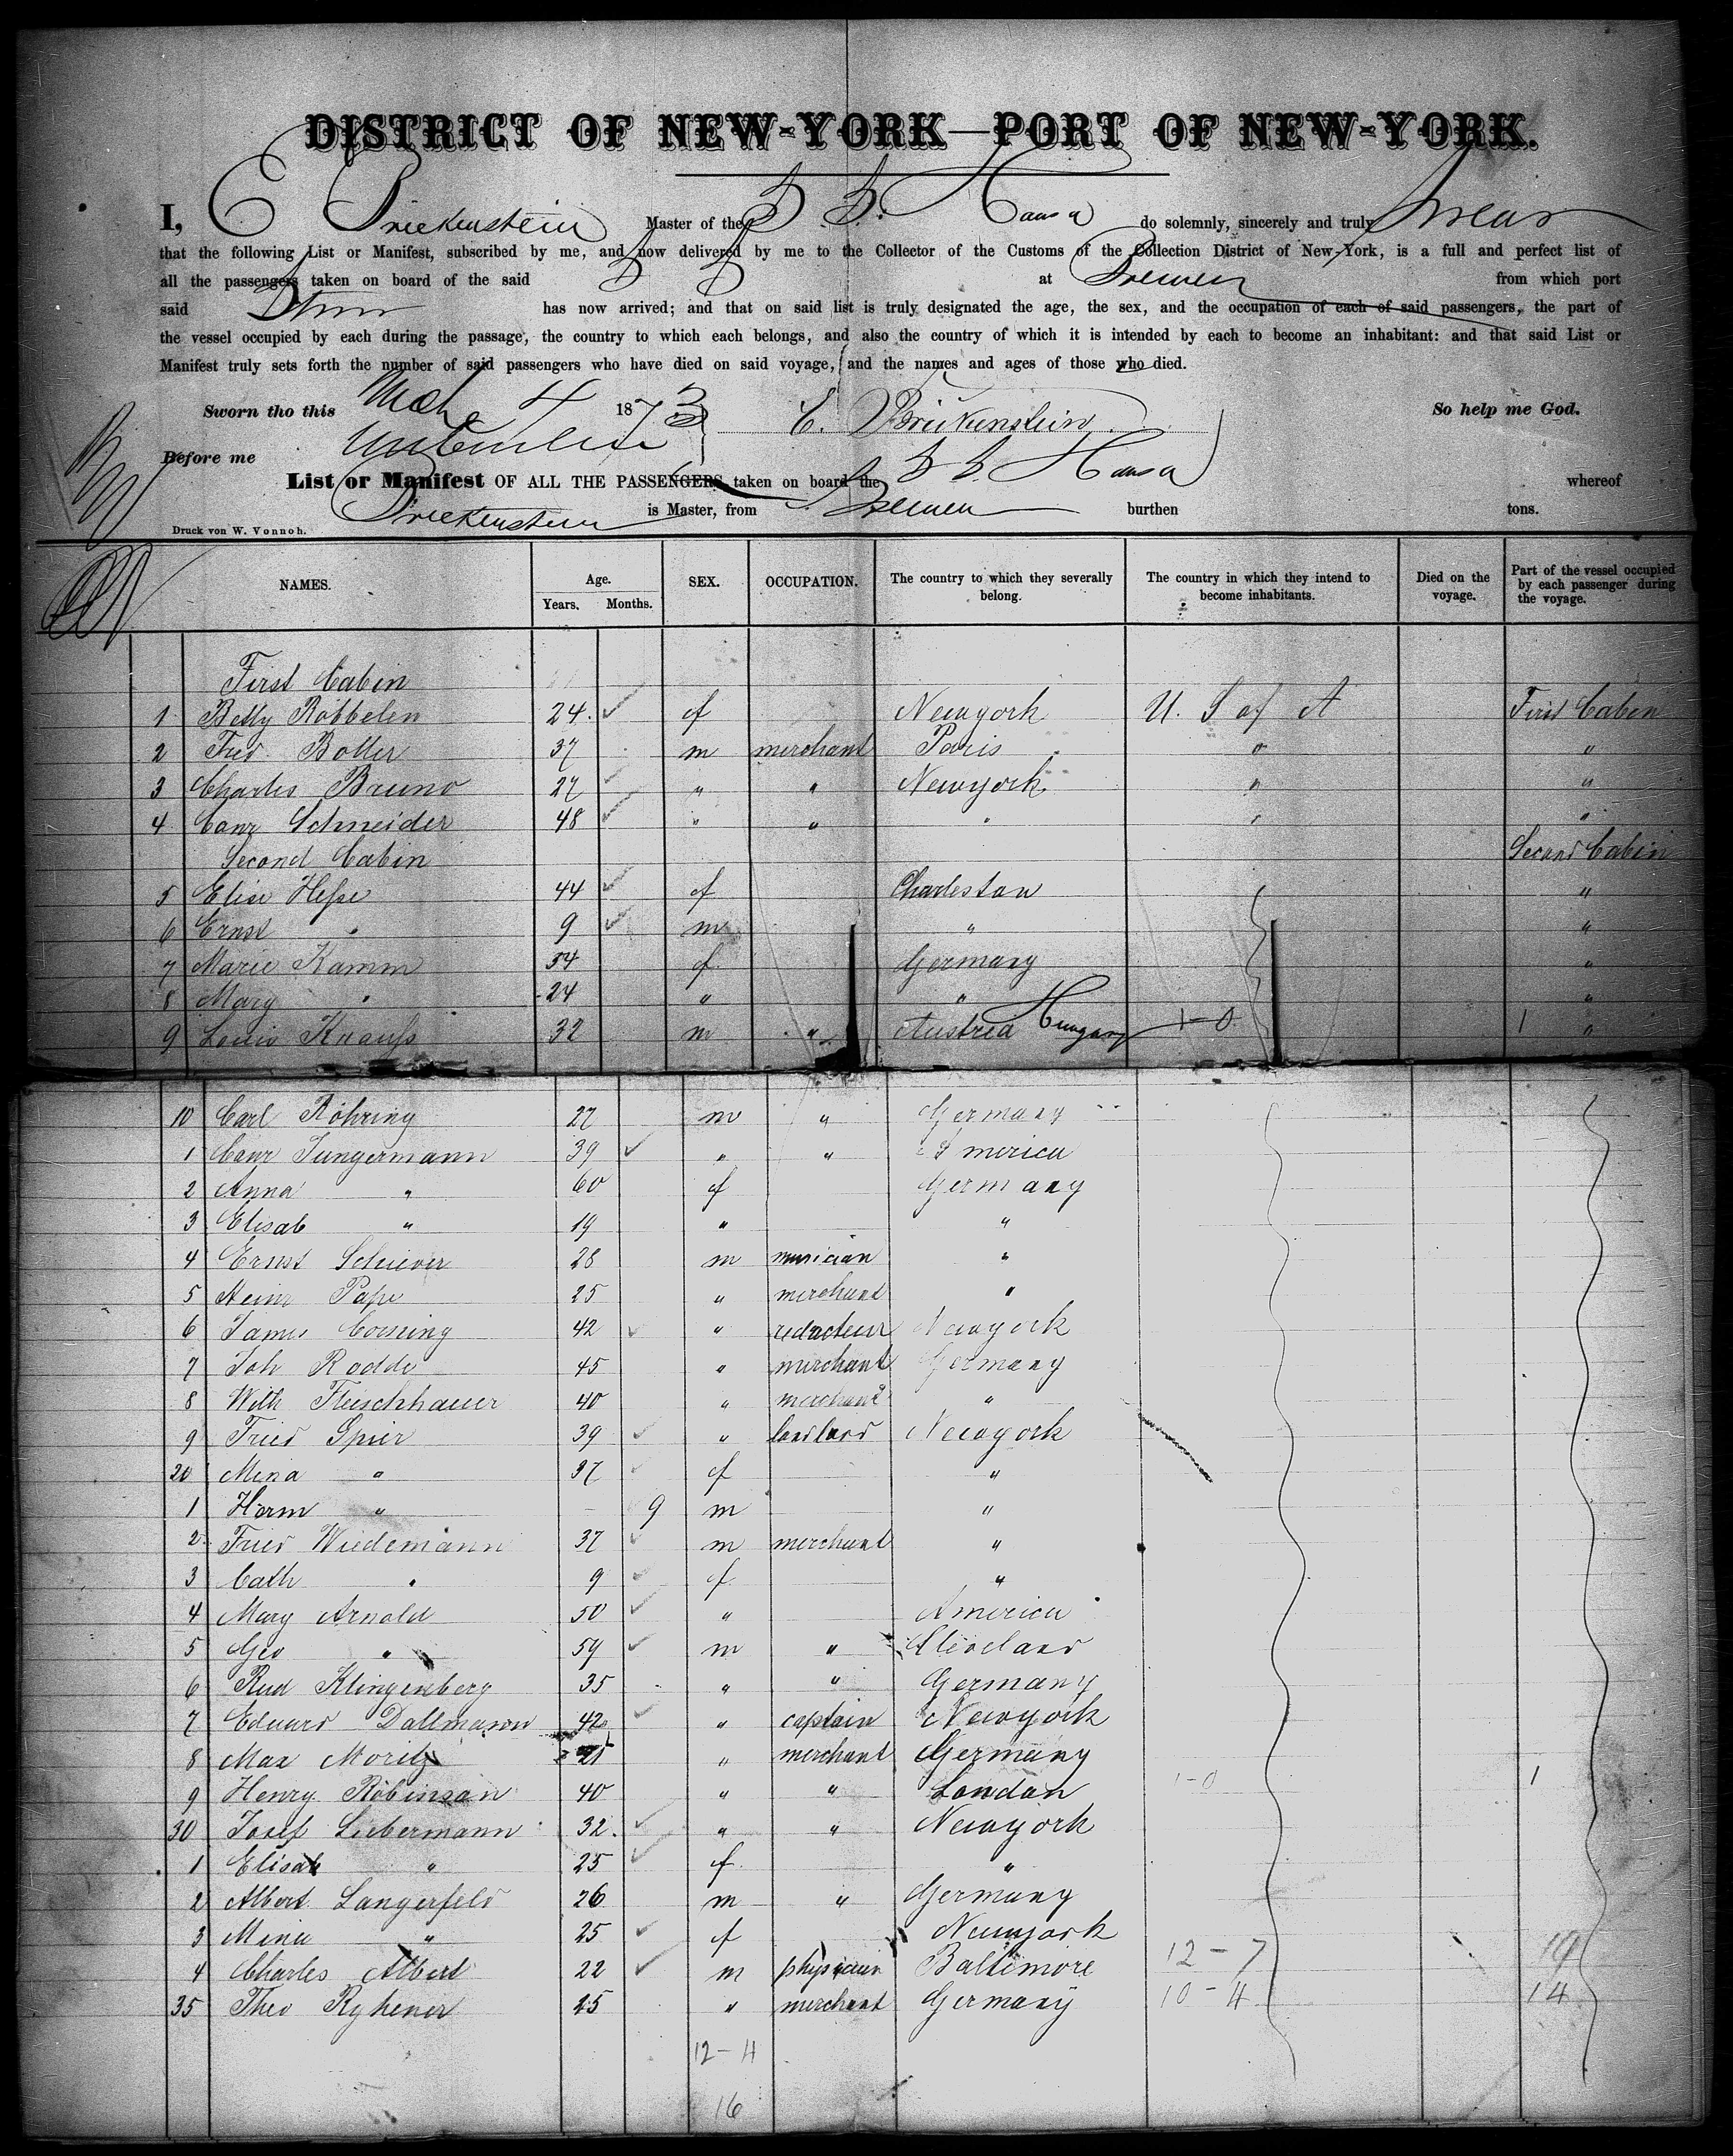 DISTRICT OF NEW-YORK—PORT OF NEW-YORK.
I, E Brickenstein Master of the S. S. Hansa do solemnly, sincerely and truly swear
that the following List or Manifest, subscribed by me, and now delivered by me to the Collector of the Customs of the Collection District of New-York, is a full and perfect list of
all the passengers taken on board of the said S S at Bremen from which port
said has now arrived; and that on said list is truly designated the age, the sex, and the occupation of each of said passengers, the part of
the vessel occupied by each during the passage, the country to which each belongs, and also the country of which it is intended by each to become an inhabitant: and that said List or
Manifest truly sets forth the number of said passengers who have died on said voyage, and the names and ages of those who died.
Sworn tho this Mch 4 1873 E. Brickenstein So help me God.
Before me
List or Manifest OF ALL THE PASSENGERS taken on board the S S. Hansa whereof
Brickenstein is Master, from Bremen burthen tons.
Druck von W. Vonnoh.
NAMES. Age. Years. Months. SEX. OCCUPATION. The country to which they severally belong. The country in which they intend to become inhabitants. Died on the voyage. Part of the vessel occupied by each passenger during the voyage.
First Cabin
1 Betty Röbbelen 24. f Newyork U. S of A First Cabin
2 Fred. Botter 37 m merchant Paris " "
3 Charles Bruno 27 " " Newyork " "
4 Conr Schneider 48 " " " " "
Second Cabin Second Cabin
5 Elise Hesse 44 f Charleston "
6 Ernst " 9 m " "
7 Marie Kamm 54 f Germany "
8 Mary " 24 " " "
9 Louis Knauss 32 m " Austria Hungary 1-0 1 "
10 Carl Röhring 27 m " Germany
1 Conr Jungermann 39 " " America
2 Anna " 60 f Germany
3 Elisab " 19 " "
4 Ernst Schiever 28 m musician "
5 Heinr Pape 25 " merchant "
6 James Corssing 42 " redacteur Newyork
7 Joh Rodde 45 " merchant Germany
8 Wilh Fleischhauer 40 " merchant "
9 Fried Spier 39 " landlord Newyork
20 Mina " 37 f "
1 Herm " 9 m "
2 Fried Wiedemann 37 m merchant "
3 Cath " 9 f "
4 Mary Arnold 50 " America
5 Geo " 59 m " Cleveland
6 Rud Klingenberg 35 " " Germany
7 Eduard Dallmann 42 " captain Newyork
8 Max Moritz 21 " merchant Germany
9 Henry Robinson 40 " " London 1-0 1
30 Josef Liebermann 32. " " Newyork
1 Elisab " 25 f "
2 Albert Langerfeld 26 m " Germany
3 Mina " 25 f Newyork
4 Charles Albert 22 m physician Baltimore 12-7 19
35 Theo Ryhener 25 " merchant Germany 10-4 14
12-4
16